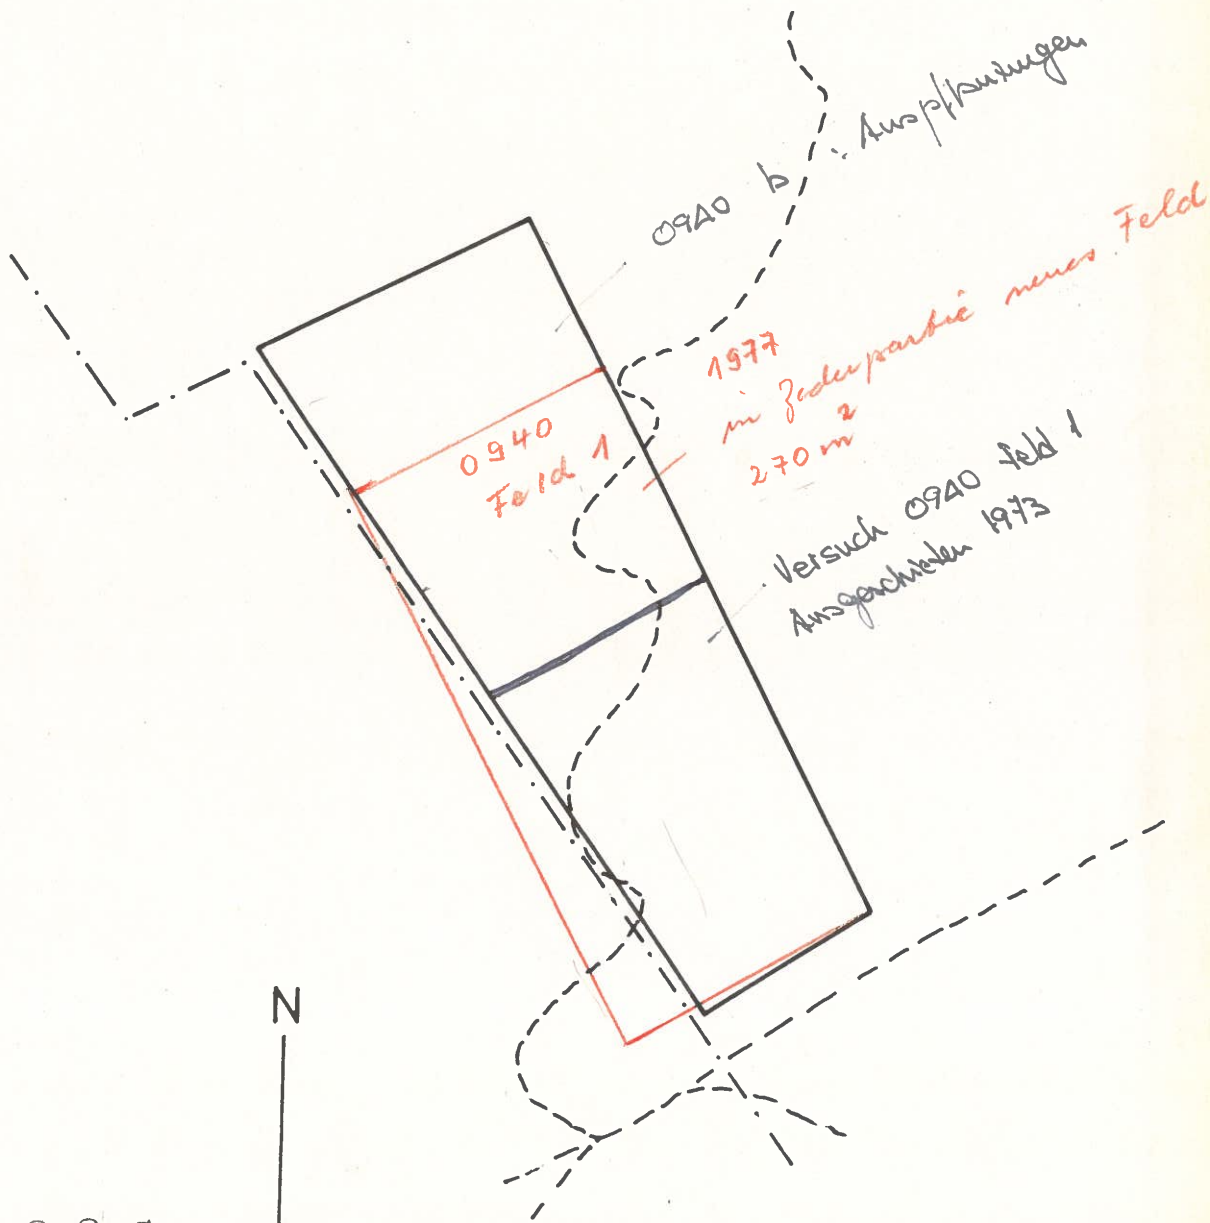 0940 b : Auspflanzungen
1977
in Zederpartie neues Feld
270 m²
0940
Feld 1
Versuch 0940 Feld 1
Ausgeschieden 1973
N